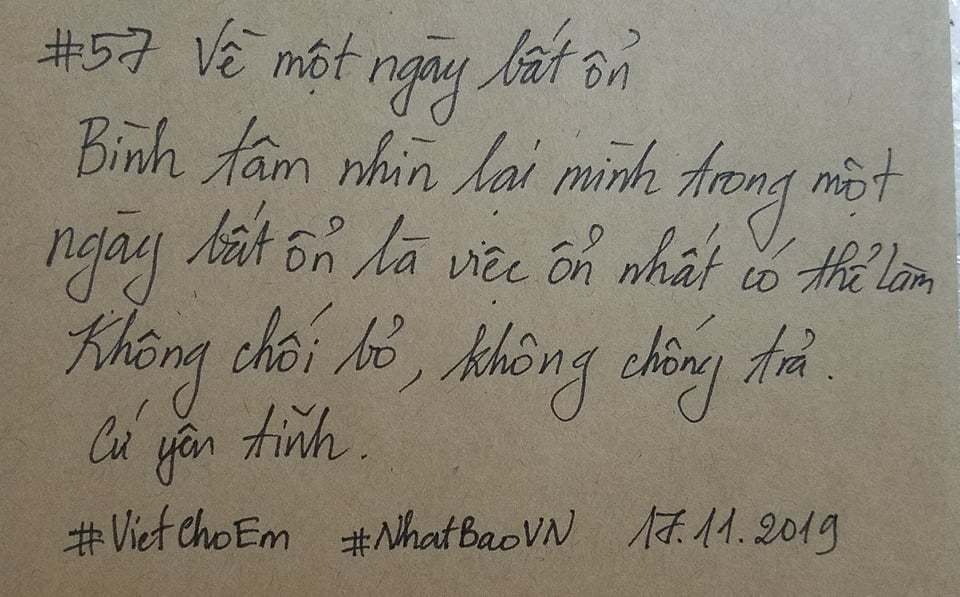 #57 Về một ngày bất ổn
Bình tâm nhìn lại mình trong một
ngày bất ổn là việc ổn nhất có thể làm
Không chối bỏ, không chống trả.
Cứ yên tĩnh.
#VietChoEm #NhatBaoVN 17.11.2019